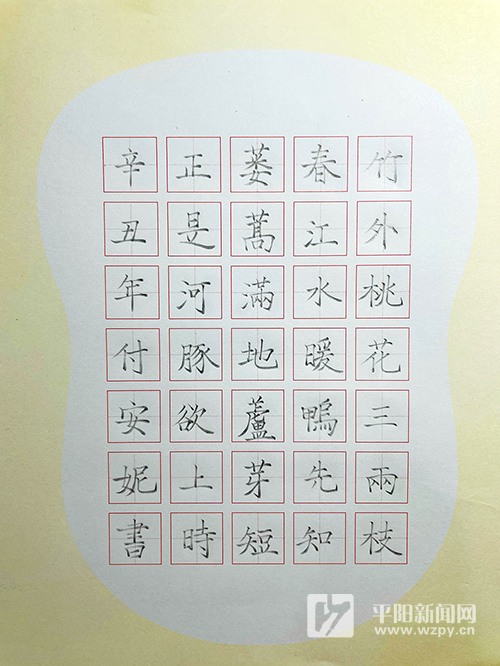 竹外桃花三兩枝
春江水暖鴨先知
蒌蒿滿地蘆芽短
正是河豚欲上時
辛丑年付安妮書
平阳新闻网
www.wzpy.cn